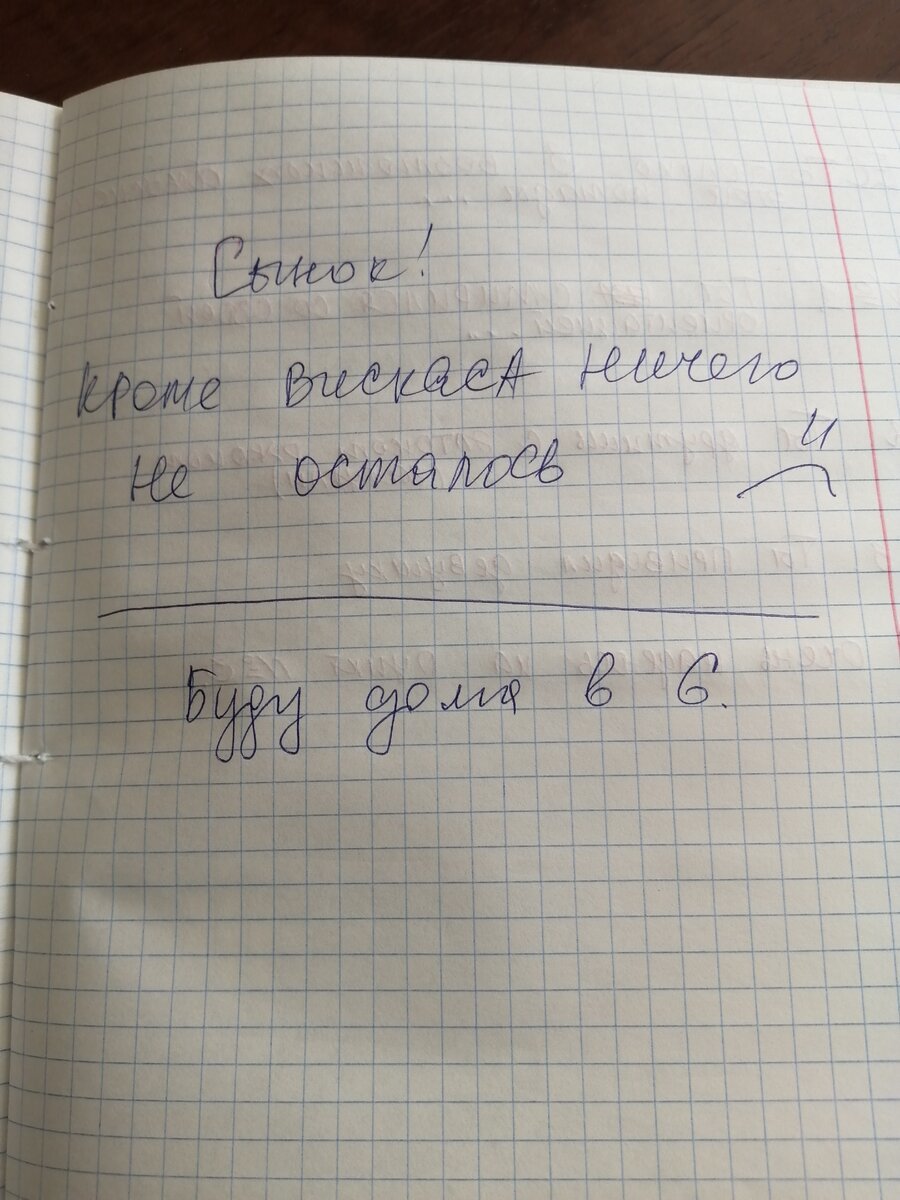 Сынок!
кроме вискасА ничего
не осталось
Буду дома в 6.